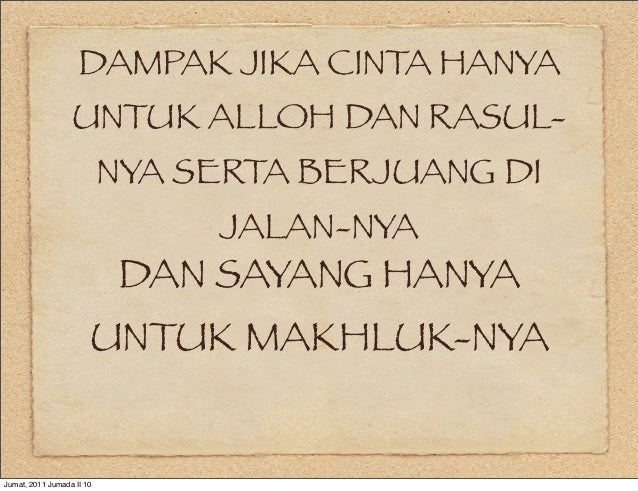 DAMPAK JIKA CINTA HANYA
UNTUK ALLOH DAN RASUL-
NYA SERTA BERJUANG DI
JALAN-NYA
DAN SAYANG HANYA
UNTUK MAKHLUK-NYA
Jumat, 2011 Jumada II 10